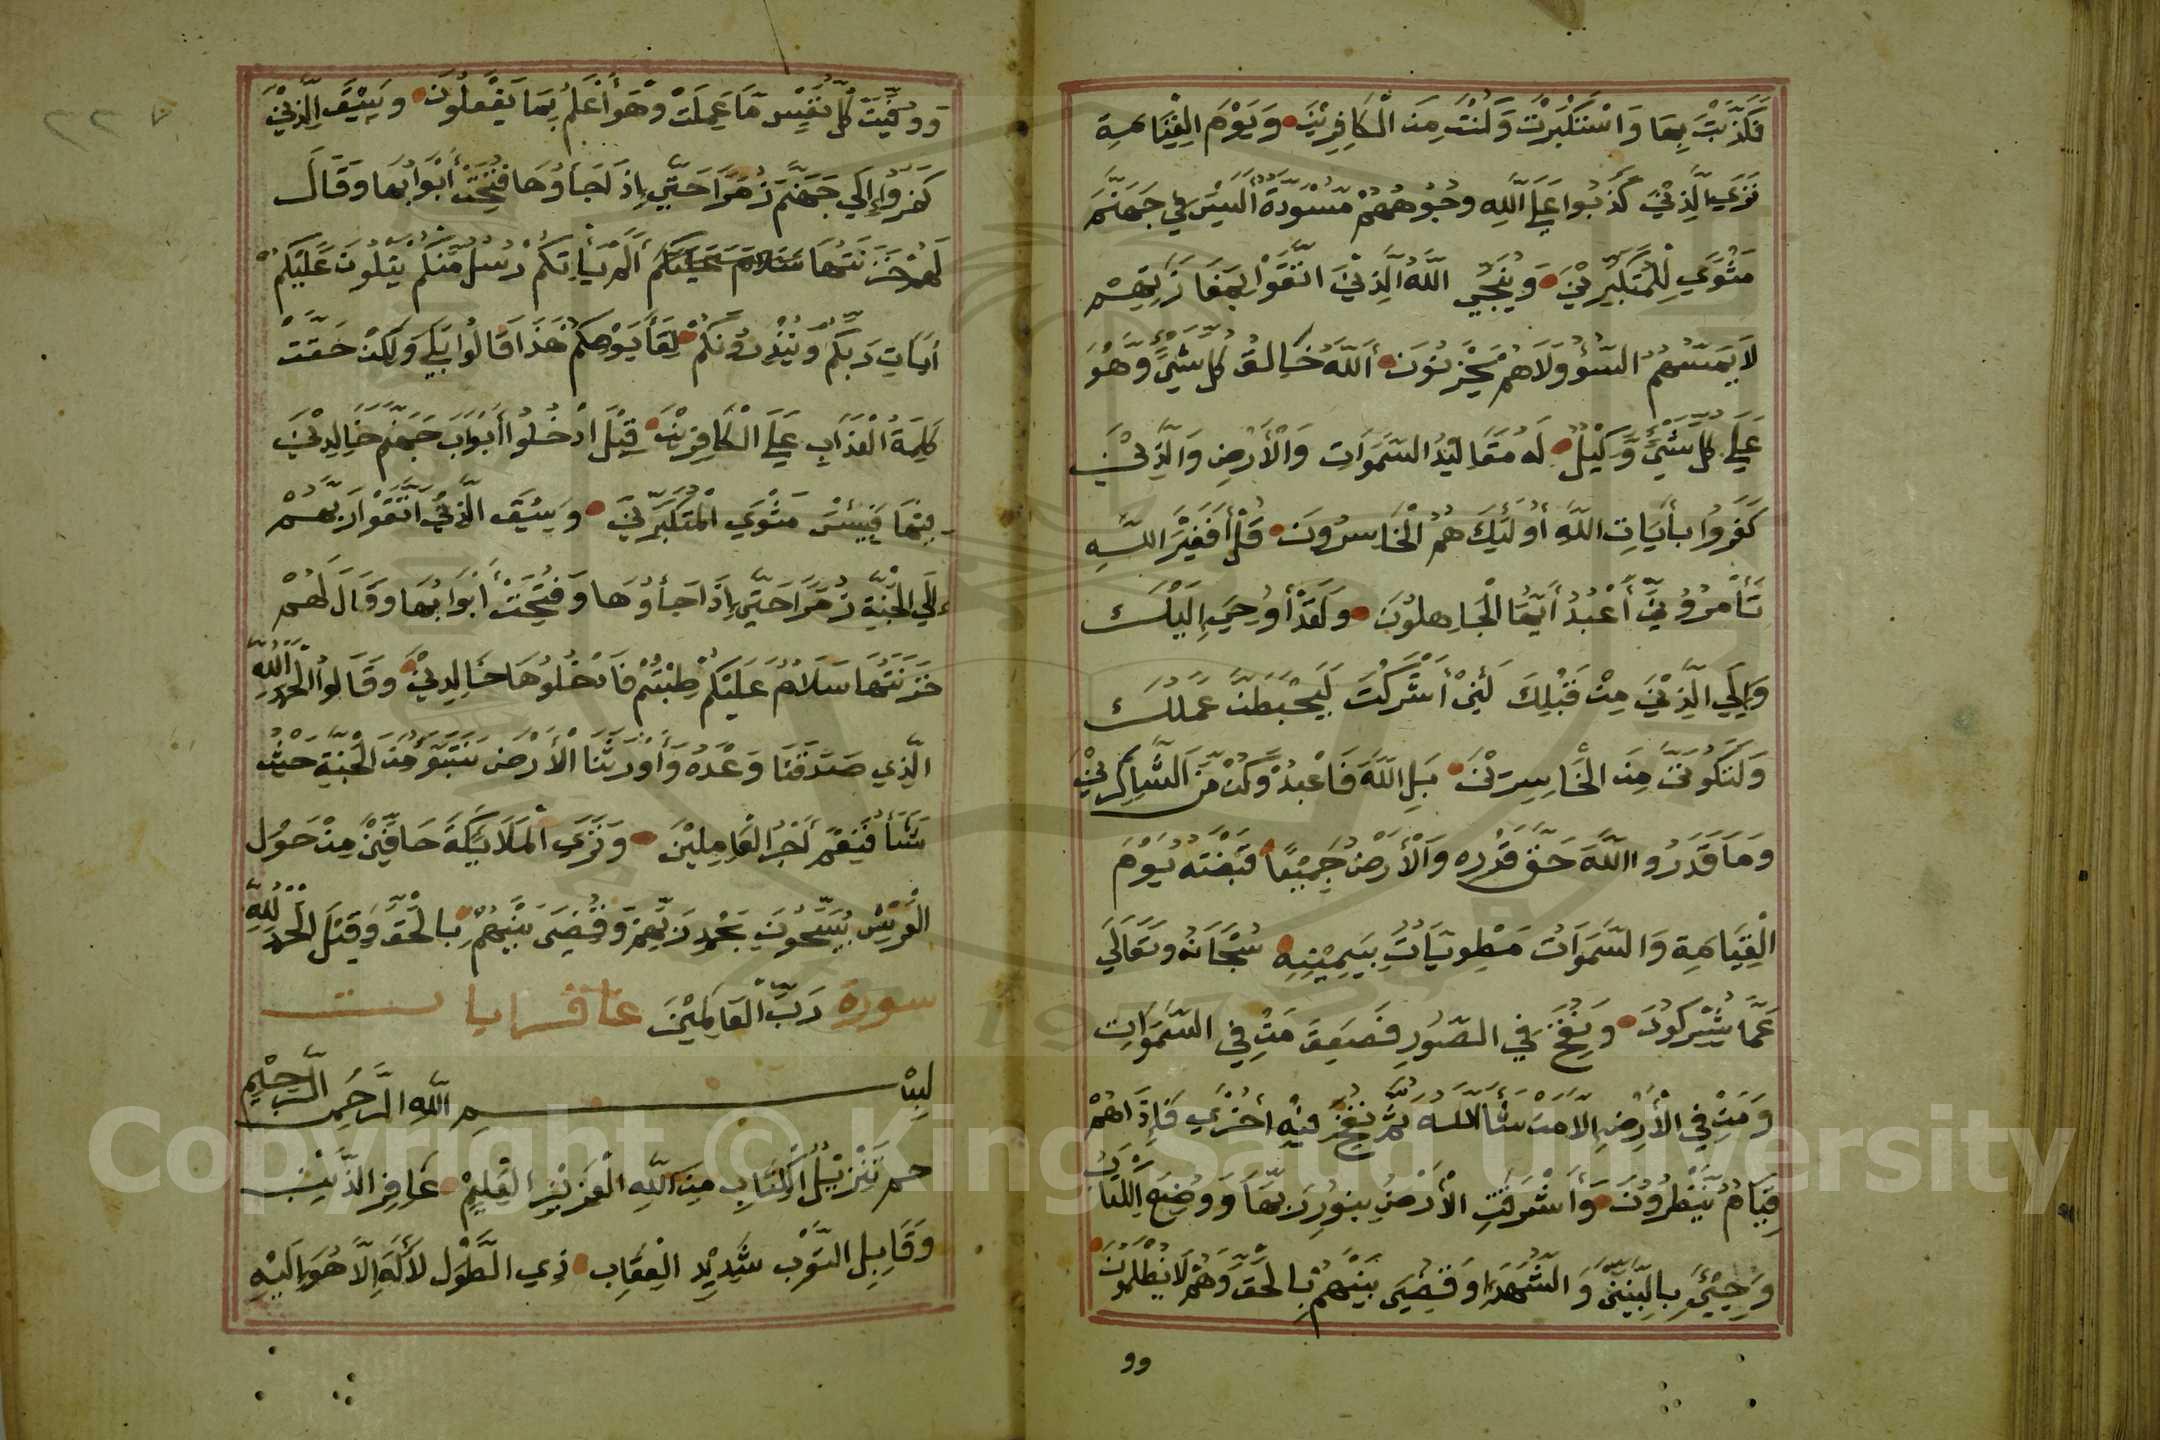 فَكَذَّبْتَ بِهَا وَاسْتَكْبَرْتَ وَكُنْتَ مِنَ الْكَافِرِيْنَ وَيَوْمَ الْقِيَامَةِ
تَرَى الَّذِيْنَ كَذَبُوا عَلَى اللَّهِ وُجُوْهُهُمْ مُّسْوَدَّةٌ أَلَيْسَ فِي جَهَنَّمَ
مَثْوًى لِّلْمُتَكَبِّرِيْنَ وَيُنَجِّي اللَّهُ الَّذِيْنَ اتَّقَوْا بِمَفَازَتِهِمْ
لَا يَمَسُّهُمُ السُّوْءُ وَلَا هُمْ يَحْزَنُوْنَ أَللَّهُ خَالِقُ كُلِّ شَيْءٍ وَّهُوَ
عَلَى كُلِّ شَيْءٍ وَّكِيْلٌ لَهُ مَقَالِيْدُ السَّمَوَاتِ وَالْأَرْضِ وَالَّذِيْنَ
كَفَرُوا بِأَيَاتِ اللَّهِ أُولَئِكَ هُمُ الْخَاسِرُوْنَ قُلْ أَفَغَيْرَ اللَّهِ
تَأْمُرُوْنِّي أَعْبُدُ أَيُّهَا الْجَاهِلُوْنَ وَلَقَدْ أُوْحِيَ إِلَيْكَ
وَإِلَى الَّذِيْنَ مِنْ قَبْلِكَ لَئِنْ أَشْرَكْتَ لَيَحْبَطَنَّ عَمَلُكَ
وَلَتَكُوْنَنَّ مِنَ الْخَاسِرِيْنَ بَلِ اللَّهَ فَاعْبُدْ وَكُنْ مِّنَ الشَّاكِرِيْنَ
وَمَا قَدَرُوا اللَّهَ حَقَّ قَدْرِهِ وَالْأَرْضُ جَمِيْعًا قَبْضَتُهُ يَوْمَ
الْقِيَامَةِ وَالسَّمَوَاتُ مَطْوِيَّاتٌ بِيَمِيْنِهِ سُبْحَانَهُ وَتَعَالَى
عَمَّا يُشْرِكُوْنَ وَنُفِخَ فِي الصُّوْرِ فَصَعِقَ مَنْ فِي السَّمَوَاتِ
وَمَنْ فِي الْأَرْضِ إِلَّا مَنْ شَأَ اللَّهُ ثُمَّ نُفِخَ فِيْهِ أُخْرَى فَإِذَا هُمْ
قِيَامٌ يَّنْظُرُوْنَ وَأَشْرَقَتِ الْأَرْضُ بِنُوْرِ رَبِّهَا وَوُضِعَ الْكِتَابُ
وَجِيْءَ بِالنَّبِيِّيْنَ وَالشُّهَدَاءِ وَقُضِيَ بَيْنَهُمْ بِالْحَقِّ وَهُمْ لَا يُظْلَمُوْنَ
وو
وَوُفِّيَتْ كُلُّ نَفْسٍ مَّا عَمِلَتْ وَهُوَ أَعْلَمُ بِمَا يَفْعَلُوْنَ وَسِيْقَ الَّذِيْنَ
كَفَرُوْا إِلَى جَهَنَّمَ زُمَرًا حَتَّى إِذَا جَاؤُهَا فُتِحَتْ أَبْوَابُهَا وَقَالَ
لَهُمْ خَزَنَتُهَا سَلَامٌ عَلَيْكُمْ أَلَمْ يَأْتِكُمْ رُسُلٌ مِّنْكُمْ يَتْلُوْنَ عَلَيْكُمْ
أَيَاتِ رَبِّكُمْ وَيُنْذِرُوْنَكُمْ لِقَأَ يَوْمِكُمْ هَذَا قَالُوا بَلَى وَلَكِنْ حَقَّتْ
كَلِمَةُ الْعَذَابِ عَلَى الْكَافِرِيْنَ قِيْلَ ادْخُلُوا أَبْوَابَ جَهَنَّمَ خَالِدِيْنَ
فِيْهَا فَبِئْسَ مَثْوَى الْمُتَكَبِّرِيْنَ وَسِيْقَ الَّذِيْنَ اتَّقَوْا رَبَّهُمْ
إِلَى الْجَنَّةِ زُمَرًا حَتَّى إِذَا جَاؤُهَا وَفُتِحَتْ أَبْوَابُهَا وَقَالَ لَهُمْ
خَزَنَتُهَا سَلَامٌ عَلَيْكُمْ طِبْتُمْ فَادْخُلُوْهَا خَالِدِيْنَ وَقَالُوا الْحَمْدُ لِلَّهِ
الَّذِي صَدَقَنَا وَعْدَهُ وَأَوْرَثَنَا الْأَرْضَ نَتَبَوَّءُ مِنَ الْجَنَّةِ حَيْثُ
نَشَأُ فَنِعْمَ أَجْرُ الْعَامِلِيْنَ وَتَرَى الْمَلَائِكَةَ حَافِّيْنَ مِنْ حَوْلِ
الْعَرْشِ يُسَبِّحُوْنَ بِحَمْدِ رَبِّهِمْ وَقُضِيَ بَيْنَهُمْ بِالْحَقِّ وَقِيْلَ الْحَمْدُ لِلَّهِ
سورة رَبِّ الْعَالَمِيْنَ غافر ايا ست
بِسْمِ اللَّهِ الرَّحْمَنِ الرَّحِيْمِ
حم تَنْزِيْلُ الْكِتَابِ مِنَ اللَّهِ الْعَزِيْزِ الْعَلِيْمِ غَافِرِ الذَّنْبِ
وَقَابِلِ التَّوْبِ شَدِيْدِ الْعِقَابِ ذِي الطَّوْلِ لَا إِلَهَ إِلَّا هُوَ إِلَيْهِ
Copyright © King Saud University